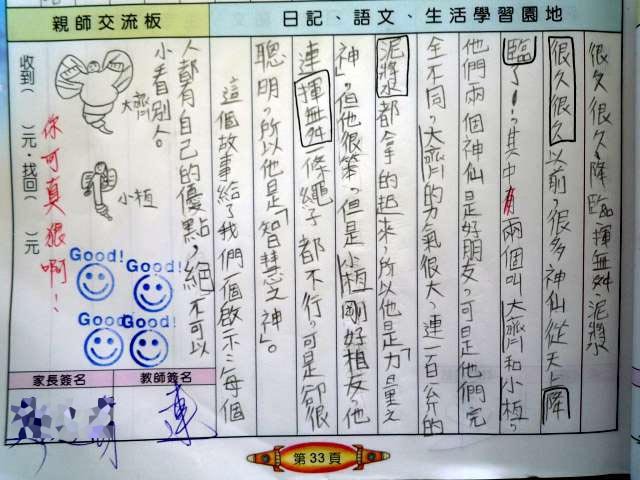 日記、語文、生活學習園地
很久很久、降臨、揮無舛、泥漿
很久很久以前，很多神仙從天上降
臨了！其中有兩個叫大齊和小恆，
他們兩個神仙是好朋友，可是他們完
全不同，大齊的力氣很大，連一百公斤的
泥漿都拿的起來，所以他是「力量之
神」，但他很笨，但是小恆剛好相友，他
連揮無舛一條繩子都不行，可是卻很
聰明，所以他是「智慧之神」。
這個故事給了我們一個啟示：每個
人都有自己的優點，絕不可以
小看別人。
親師交流板
大齊
小恆
你可真狠啊！
收到（ ）元，找回（ ）元
Good!
Good!
Good!
Good!
教師簽名
家長簽名
第33頁